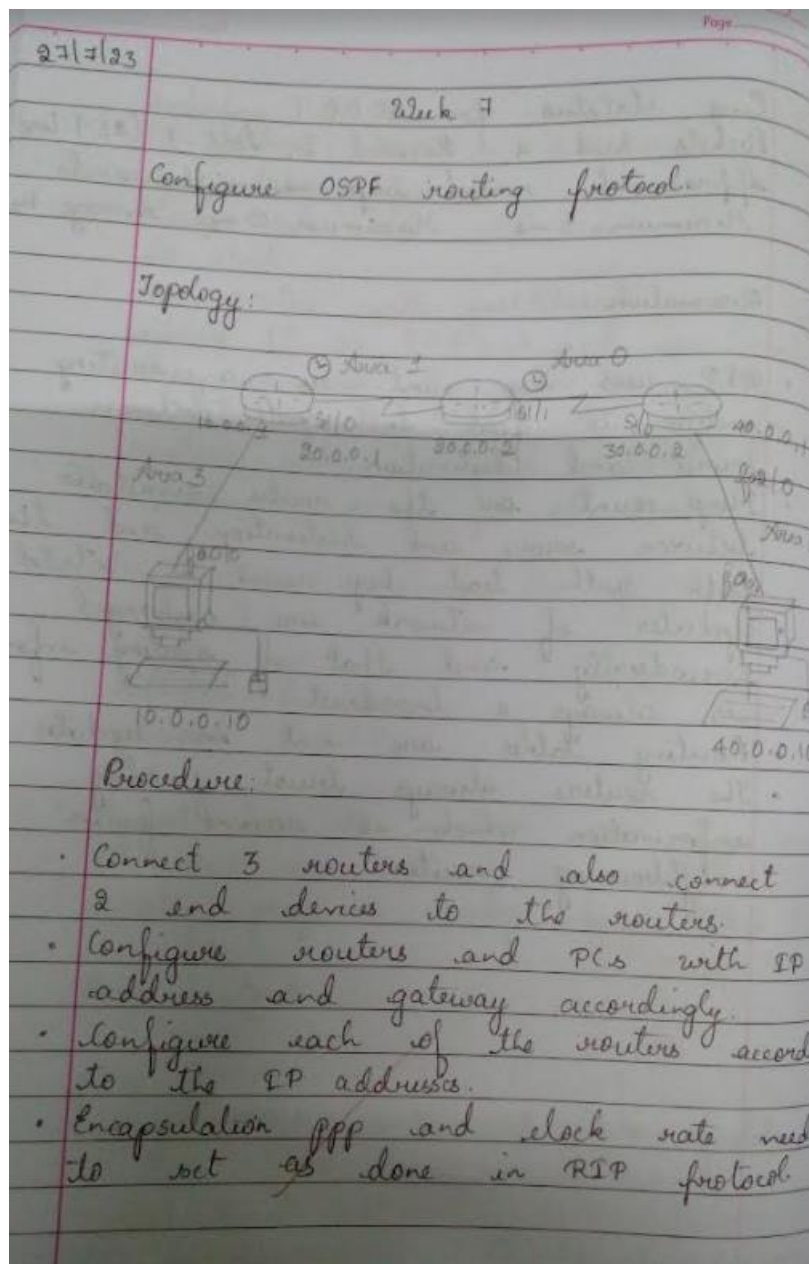 Page
27/7/23
Week 7
Configure OSPF routing protocol.
Topology:
Area 1
Area 0
S1/0
S1/1
10.0.0.
20.0.0.1
20.0.0.2
30.0.0.2
40.0.0.1
Area 3
Area
10.0.0.10
40.0.0.1
Procedure:
· Connect 3 routers and also connect
2 end devices to the routers.
· Configure routers and PCs with IP
address and gateway accordingly.
· Configure each of the routers accord
to the IP addresses.
· Encapsulation ppp and clock rate need
to set as done in RIP protocol.